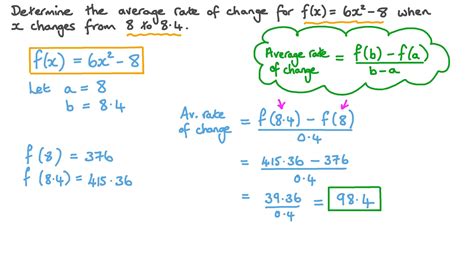 Determine the average rate of change for f(x) = 6x² - 8 when
x changes from 8 to 8.4.
f(x) = 6x² - 8
Average rate of change = f(b) - f(a) / b - a
Let a = 8
b = 8.4
f(8) = 376
f(8.4) = 415.36
Av. rate of change = f(8.4) - f(8) / 0.4
= 415.36 - 376 / 0.4
= 39.36 / 0.4 = 98.4